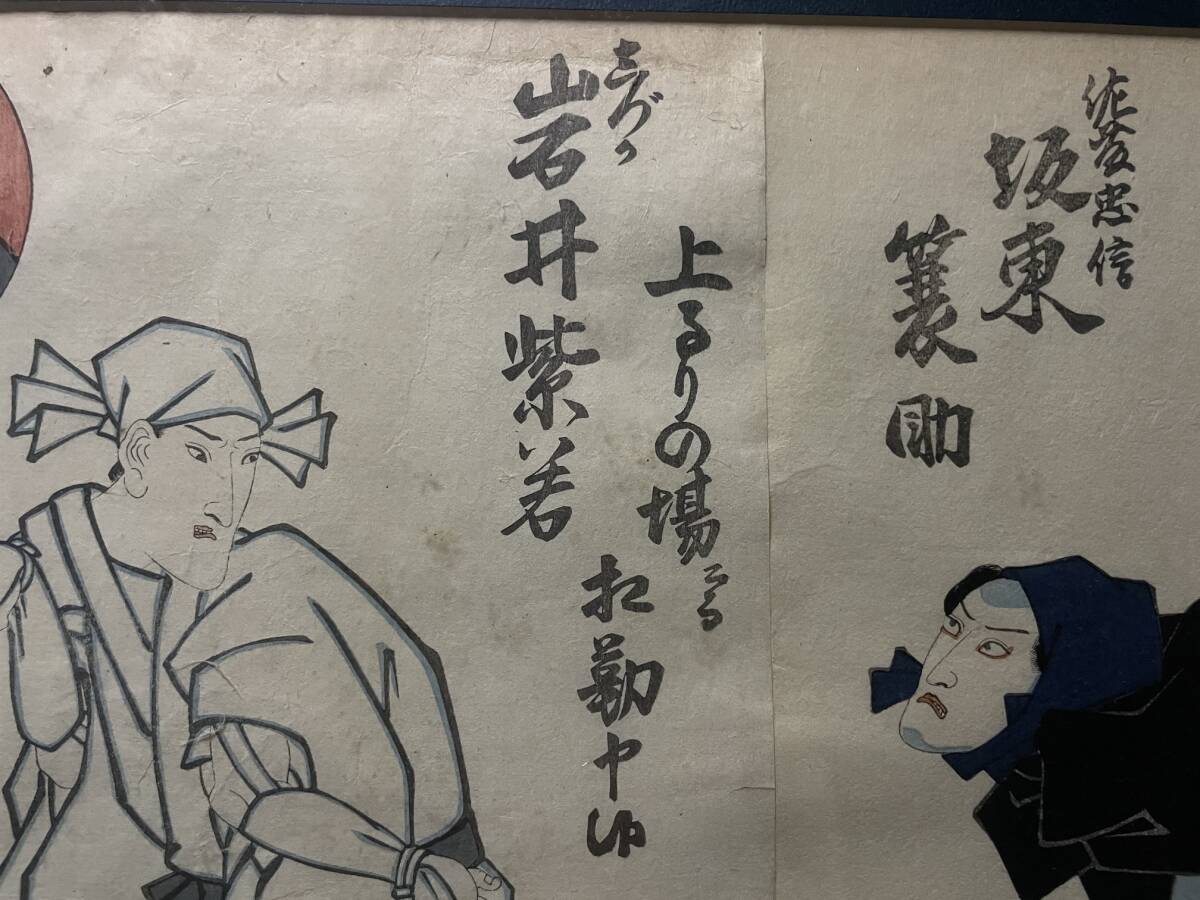 佐藤忠信
坂東
簑助
上るりの場ニる
相勤申候
志づか
岩井紫若